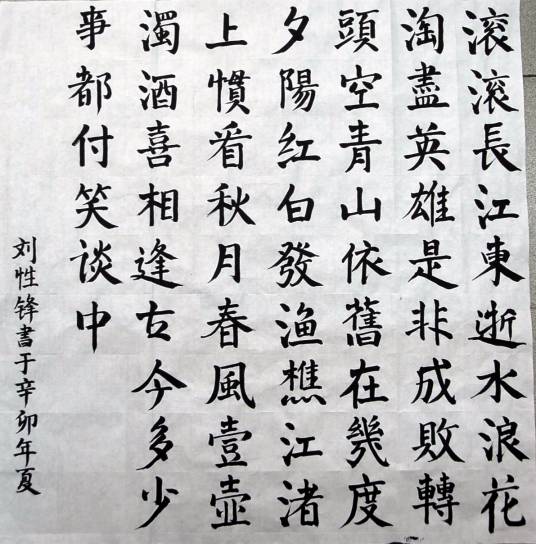 滚滚長江東逝水浪花
淘盡英雄是非成敗轉
頭空青山依舊在幾度
夕陽紅白發渔樵江渚
上慣看秋月春風壹壶
濁酒喜相逢古今多少
事都付笑谈中
刘性锋書于辛卯年夏